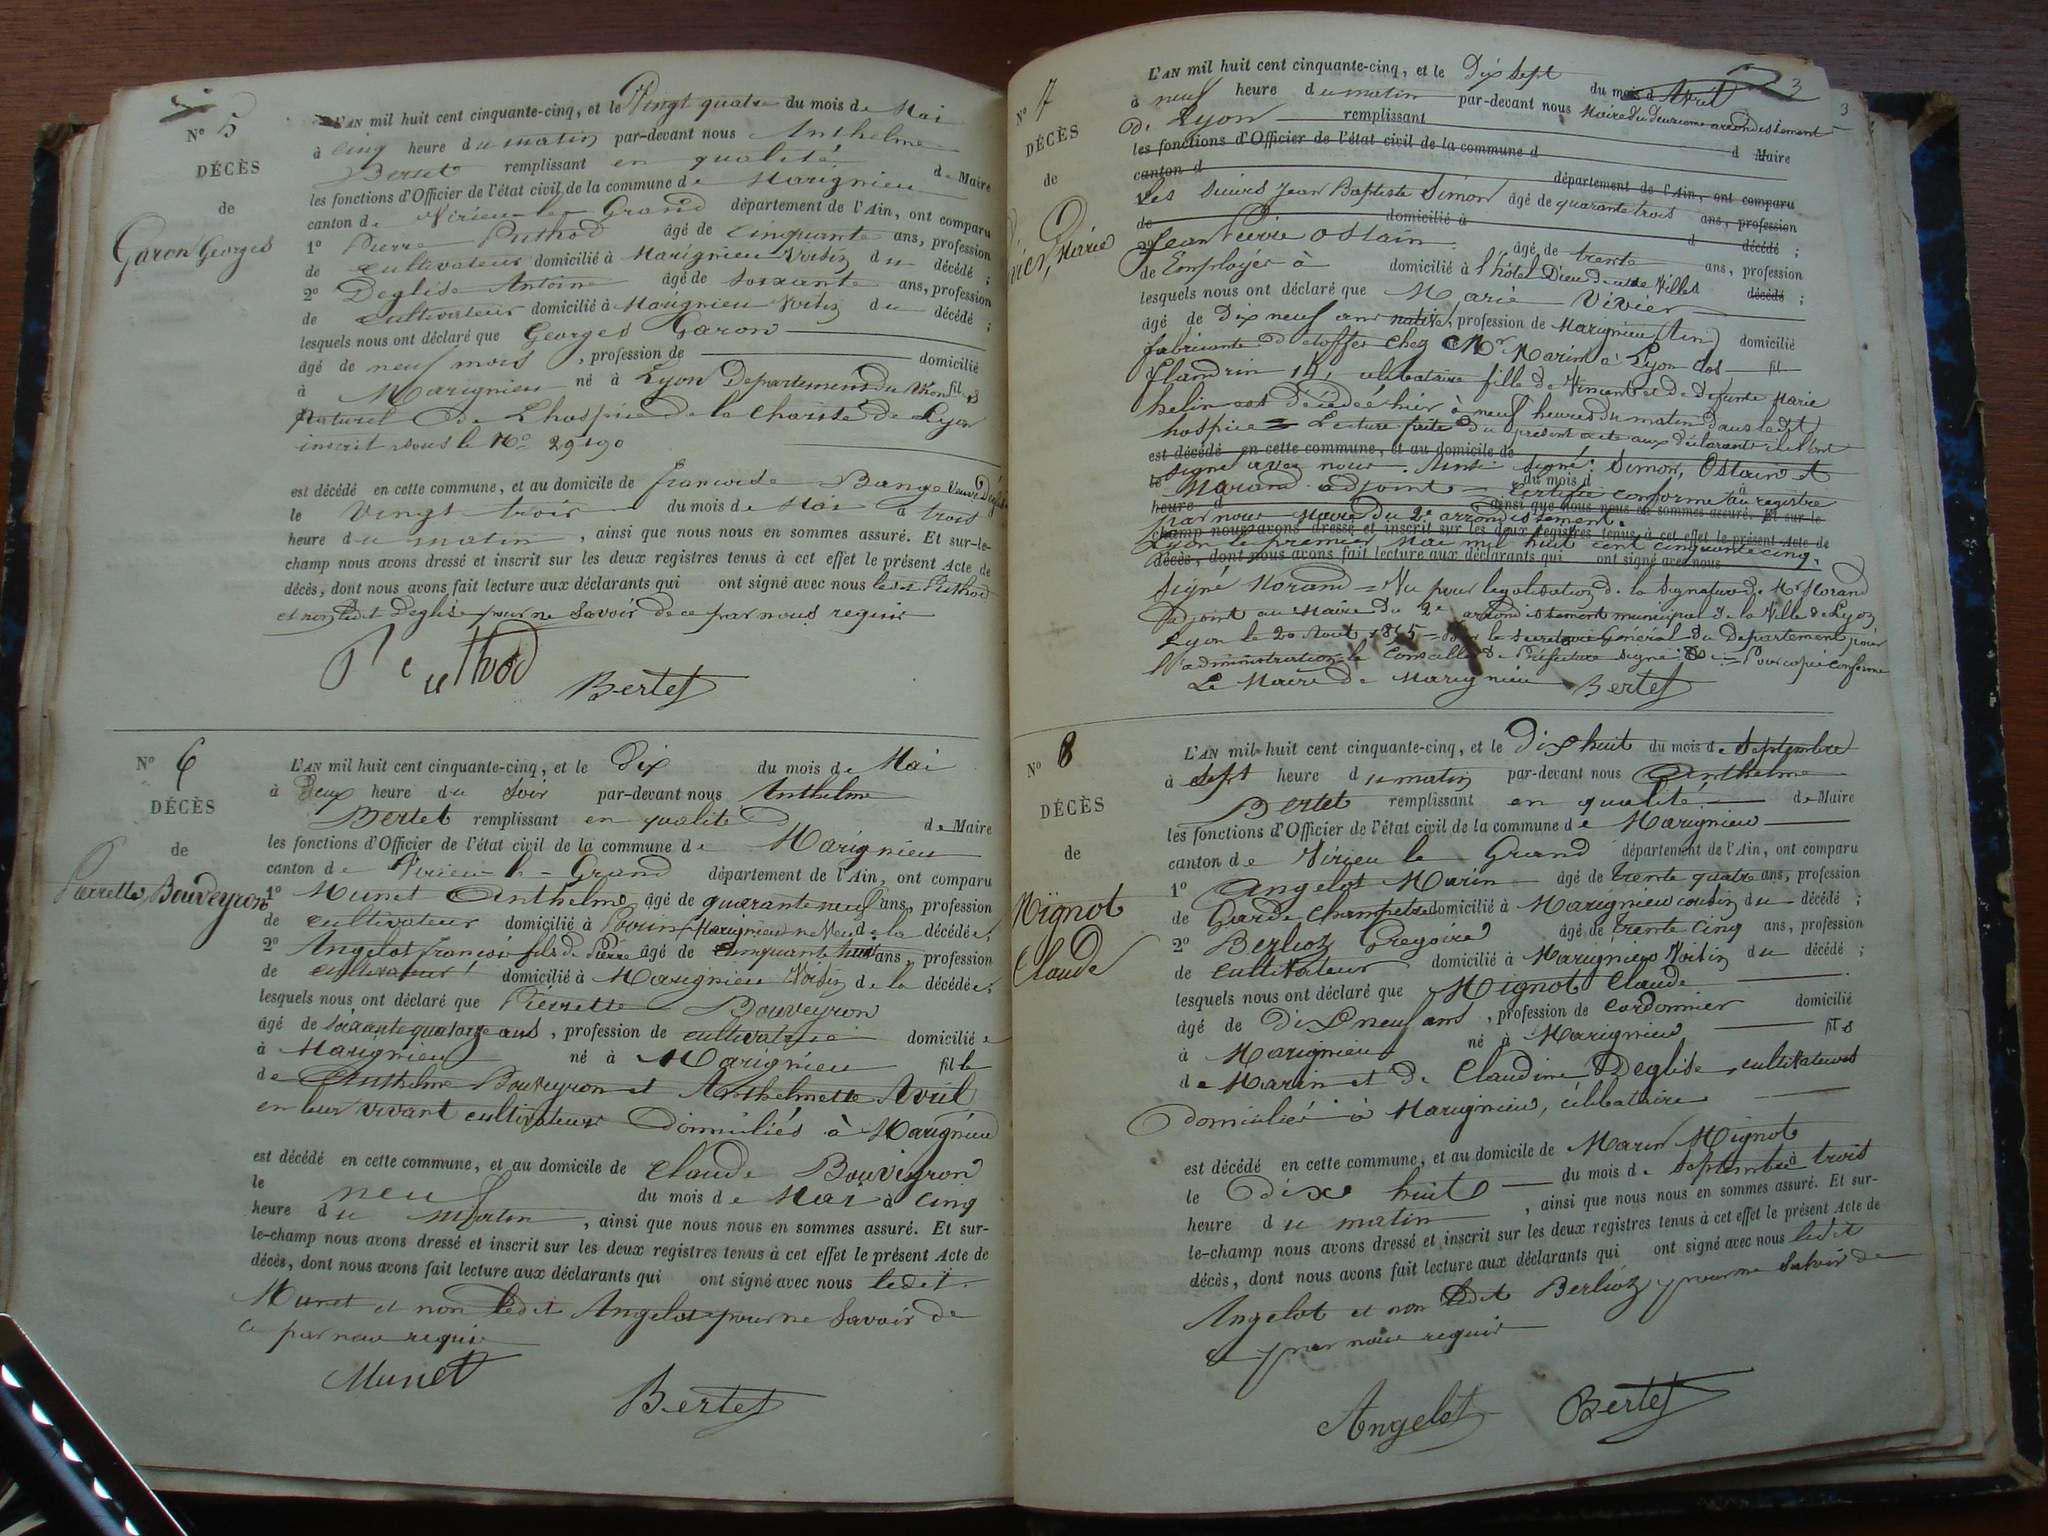 N° 5
DÉCÈS
de
Garon Georges
L'AN mil huit cent cinquante-cinq, et le Vingt quatre du mois de Mai
à cinq heure du matin par-devant nous Anthelme
Bertet remplissant en qualité de Maire
les fonctions d'Officier de l'état civil de la commune de Marignieu
canton de Virieu-le-Grand département de l'Ain, ont comparu
1° Pierre Puthod âgé de cinquante ans, profession
de cultivateur domicilié à Marignieu Voisin du décédé ;
2° Deglise Antoine âgé de soixante ans, profession
de cultivateur domicilié à Marignieu Voisin du décédé ;
lesquels nous ont déclaré que Georges Garon
âgé de neuf mois, profession de domicilié
à Marignieu né à Lyon Departement du Rhone fils
naturel de L'hospice de la charité de Lyon
inscrit sous le N°
est décédé en cette commune, et au domicile de francoise Bange Veuve
le vingt trois du mois de Mai à trois
heure du matin, ainsi que nous nous en sommes assuré. Et sur-le-
champ nous avons dressé et inscrit sur les deux registres tenus à cet effet le présent Acte de
décès, dont nous avons fait lecture aux déclarants qui ont signé avec nous ledit Puthod
et non ledit Deglise pour ne savoir de ce par nous requis
Puthod
Bertet
N° 6
DÉCÈS
de
Pierrette Bouveyron
L'AN mil huit cent cinquante-cinq, et le Dix du mois de Mai
à Deux heure du Soir par-devant nous Anthelme
Bertet remplissant en qualité de Maire
les fonctions d'Officier de l'état civil de la commune de Marignieu
canton de Virieu-le-Grand département de l'Ain, ont comparu
1° Munet Anthelme âgé de quarante neuf ans, profession
de cultivateur domicilié à Marignieu neveu de la décédée,
2° Angelot françois fils de Pierre âgé de cinquante huit ans, profession
de cultivateur domicilié à Marignieu Voisin de la décédée,
lesquels nous ont déclaré que Pierrette Bouveyron
âgé de soixante quatorze ans, profession de cultivatrice domiciliée
à Marignieu né à Marignieu fille
de Anthelme Bouveyron et Anthelmette Avril
en leur vivant cultivateurs Domiciliés à Marignieu
est décédé en cette commune, et au domicile de Claude Bouveyron
le neuf du mois de Mai à cinq
heure du matin, ainsi que nous nous en sommes assuré. Et sur-
le-champ nous avons dressé et inscrit sur les deux registres tenus à cet effet le présent Acte de
décès, dont nous avons fait lecture aux déclarants qui ont signé avec nous ledit
Munet et non ledit Angelot pour ne Savoir de
ce par nous requis
Munet
Bertet
3
3
N° 7
DÉCÈS
de
Vivier, Marie
L'AN mil huit cent cinquante-cinq, et le Dix sept du mois d'Avril
à neuf heure du matin par-devant nous Maire du deuxieme arrondissement
de Lyon remplissant
les fonctions d'Officier de l'état civil de la commune d d Maire
canton d département de l'Ain, ont comparu
Les sieurs Jean Baptiste Simon âgé de quarante trois ans, profession
de domicilié à d décédé ;
2° Jean Pierre Ostain âgé de trente ans, profession
de Employés à domicilié à l'hôtel Dieu de cette Ville décédé ;
lesquels nous ont déclaré que Marie Vivier
âgé de Dix neuf ans native, profession de Marignieu (Ain) domicilié
fabricante d'étoffes chez Mr Marin à Lyon fil
Flandrin 14, celibataire fille de Vincent et de Defunte Marie
est décédée hier à neuf heures du matin dans ledit
hospice = Lecture faite du présent acte aux déclarants ils l'ont
est décédé en cette commune, et au domicile de
signé avec nous. Ainsi signé : Simon, Ostain et
le du mois d à
Morand adjoint = Certifié conforme au registre
heure d ainsi que nous nous en sommes assuré. Et sur-le
par nous Maire du 2e arrondissement.
champ nous avons dressé et inscrit sur les deux registres tenus à cet effet le présent Acte de
Lyon le premier Mai mil huit cent cinquante cinq.
décès, dont nous avons fait lecture aux déclarants qui ont signé avec nous
Signé Morand = Vu pour légalisation de la Signature de Mr Morand
adjoint au Maire du 2e arrondissement municipal de la Ville de Lyon
Lyon le 20 Aout 1855 = le Secretaire Général du Departement pour
administration le Conseiller de Préfecture signé = Pour copie conforme
Le Maire de Marignieu Bertet
N° 8
DÉCÈS
de
Mignot
Claude
L'AN mil huit cent cinquante-cinq, et le Dix huit du mois de Septembre
à sept heure du matin par-devant nous Anthelme
Bertet remplissant en qualité de Maire
les fonctions d'Officier de l'état civil de la commune de Marignieu
canton de Virieu le Grand département de l'Ain, ont comparu
1° Angelot Marin âgé de trente quatre ans, profession
de Garde champetre domicilié à Marignieu cousin du décédé ;
2° Berlioz Gregoire âgé de trente cinq ans, profession
de cultivateur domicilié à Marignieu Voisin du décédé ;
lesquels nous ont déclaré que Mignot Claude
âgé de Dix neuf ans, profession de cordonnier domicilié
à Marignieu né à Marignieu fils
de Marin et de Claudine Deglise, cultivateurs
domiciliés à Marignieu, célibataire
est décédé en cette commune, et au domicile de Marin Mignot
le dix huit du mois de Septembre à trois
heure du matin, ainsi que nous nous en sommes assuré. Et sur-
le-champ nous avons dressé et inscrit sur les deux registres tenus à cet effet le présent Acte de
décès, dont nous avons fait lecture aux déclarants qui ont signé avec nous ledit
Angelot et non ledit Berlioz pour ne Savoir de
ce par nous requis
Angelot
Bertet